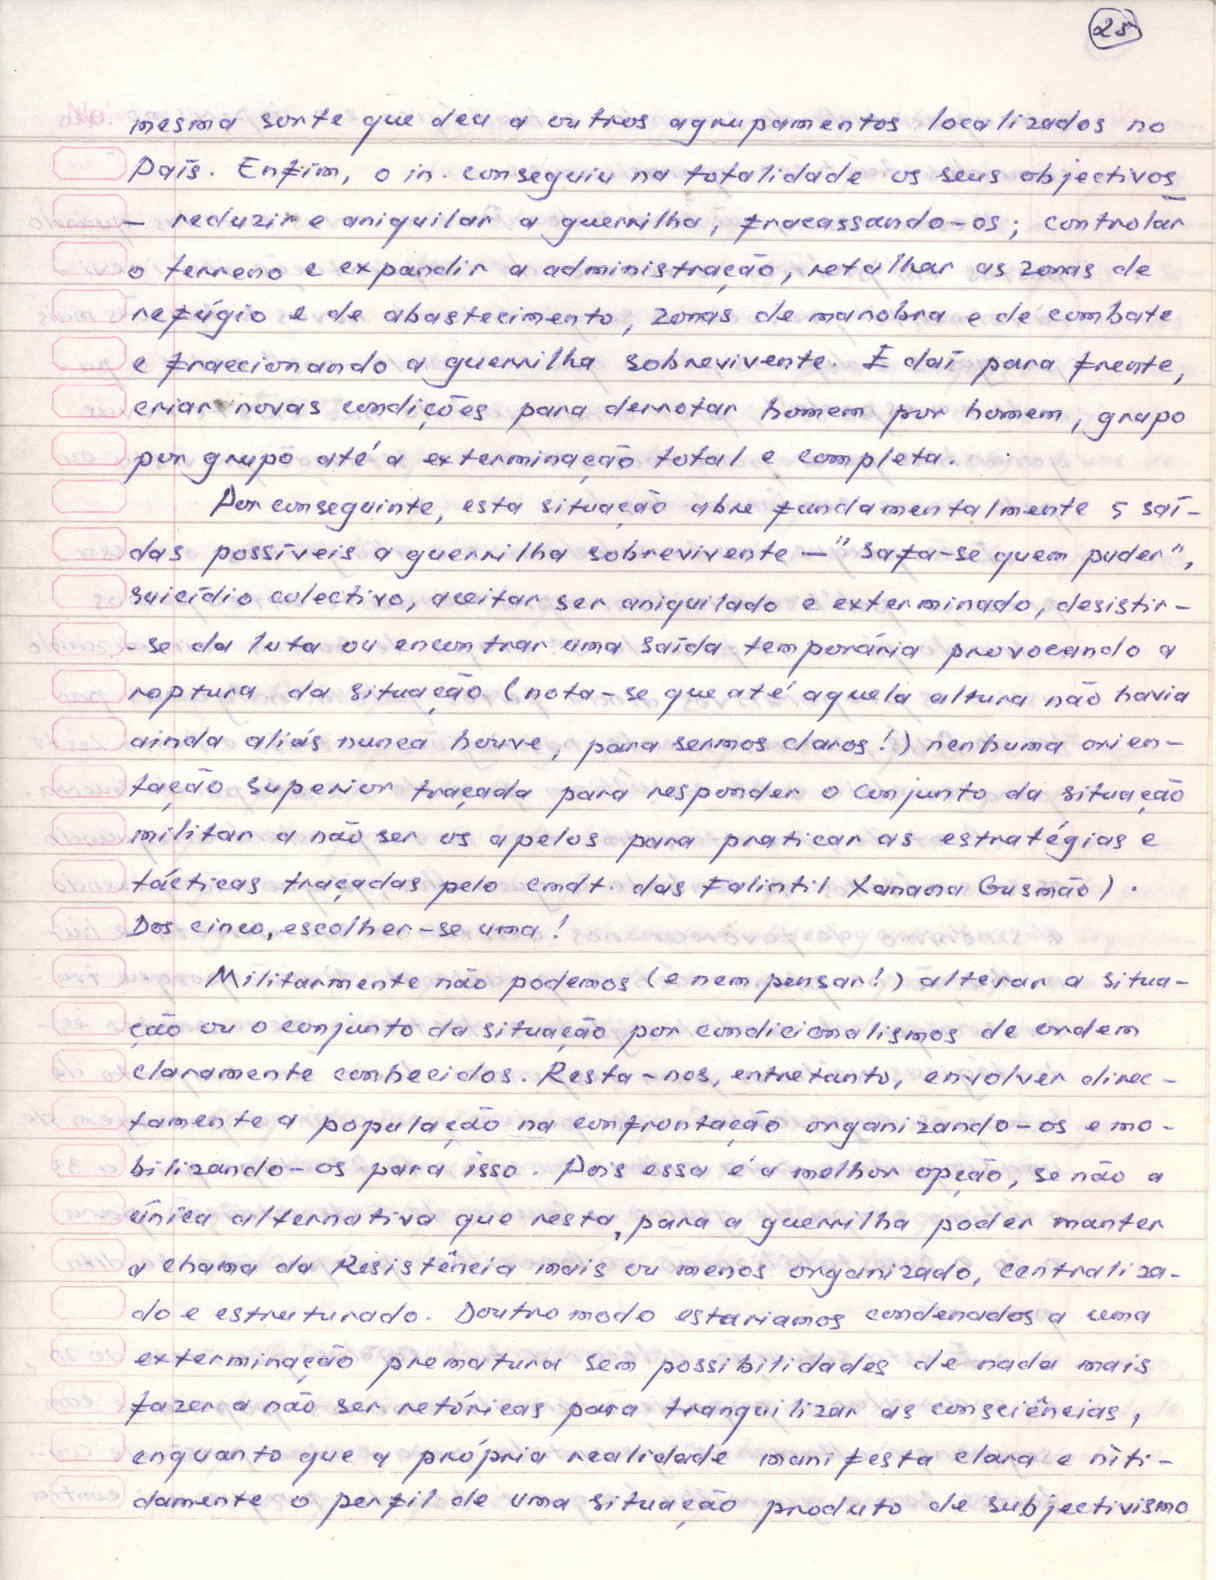 25
mesma sorte que deu a outros agrupamentos localizados no
País. Enfim, o in. conseguiu na totalidade os seus objectivos
- reduzir e aniquilar a guerrilha, fracassando-os; controlar
o terreno e expandir a administração, retalhar as zonas de
refúgio e de abastecimento, zonas de manobra e de combate
e fraccionando a guerrilha sobrevivente. E daí para frente,
criar novas condições para derrotar homem por homem, grupo
por grupo até a exterminação total e completa.
Por conseguinte, esta situação abre fundamentalmente 5 saí-
das possíveis a guerrilha sobrevivente - "safa-se quem puder",
suicídio colectivo, aceitar ser aniquilado e exterminado, desistir-
-se da luta ou encontrar uma saída temporária provocando a
roptura da situação (nota-se que até aquela altura não havia
ainda aliás nunca houve, para sermos claros!) nenhuma orien-
tação superior traçada para responder o conjunto da situação
militar a não ser os apelos para praticar as estratégias e
tácticas traçadas pelo cmdt. das Falintil Xanana Gusmão).
Dos cinco, escolher-se uma!
Militarmente não podemos (e nem pensar!) alterar a situa-
ção ou o conjunto da situação por condicionalismos de ordem
claramente conhecidos. Resta-nos, entretanto, envolver direc-
tamente a população na confrontação organizando-os e mo-
bilizando-os para isso. Pois essa é a melhor opção, se não a
única alternativa que resta, para a guerrilha poder manter
a chama da Resistência mais ou menos organizado, centraliza-
do e estruturado. Doutro modo estariamos condenados a uma
exterminação prematura sem possibilidades de nada mais
fazer a não ser retóricas para tranquilizar as consciências,
enquanto que a própria realidade manifesta clara e niti-
damente o perfil de uma situação produto de subjectivismo